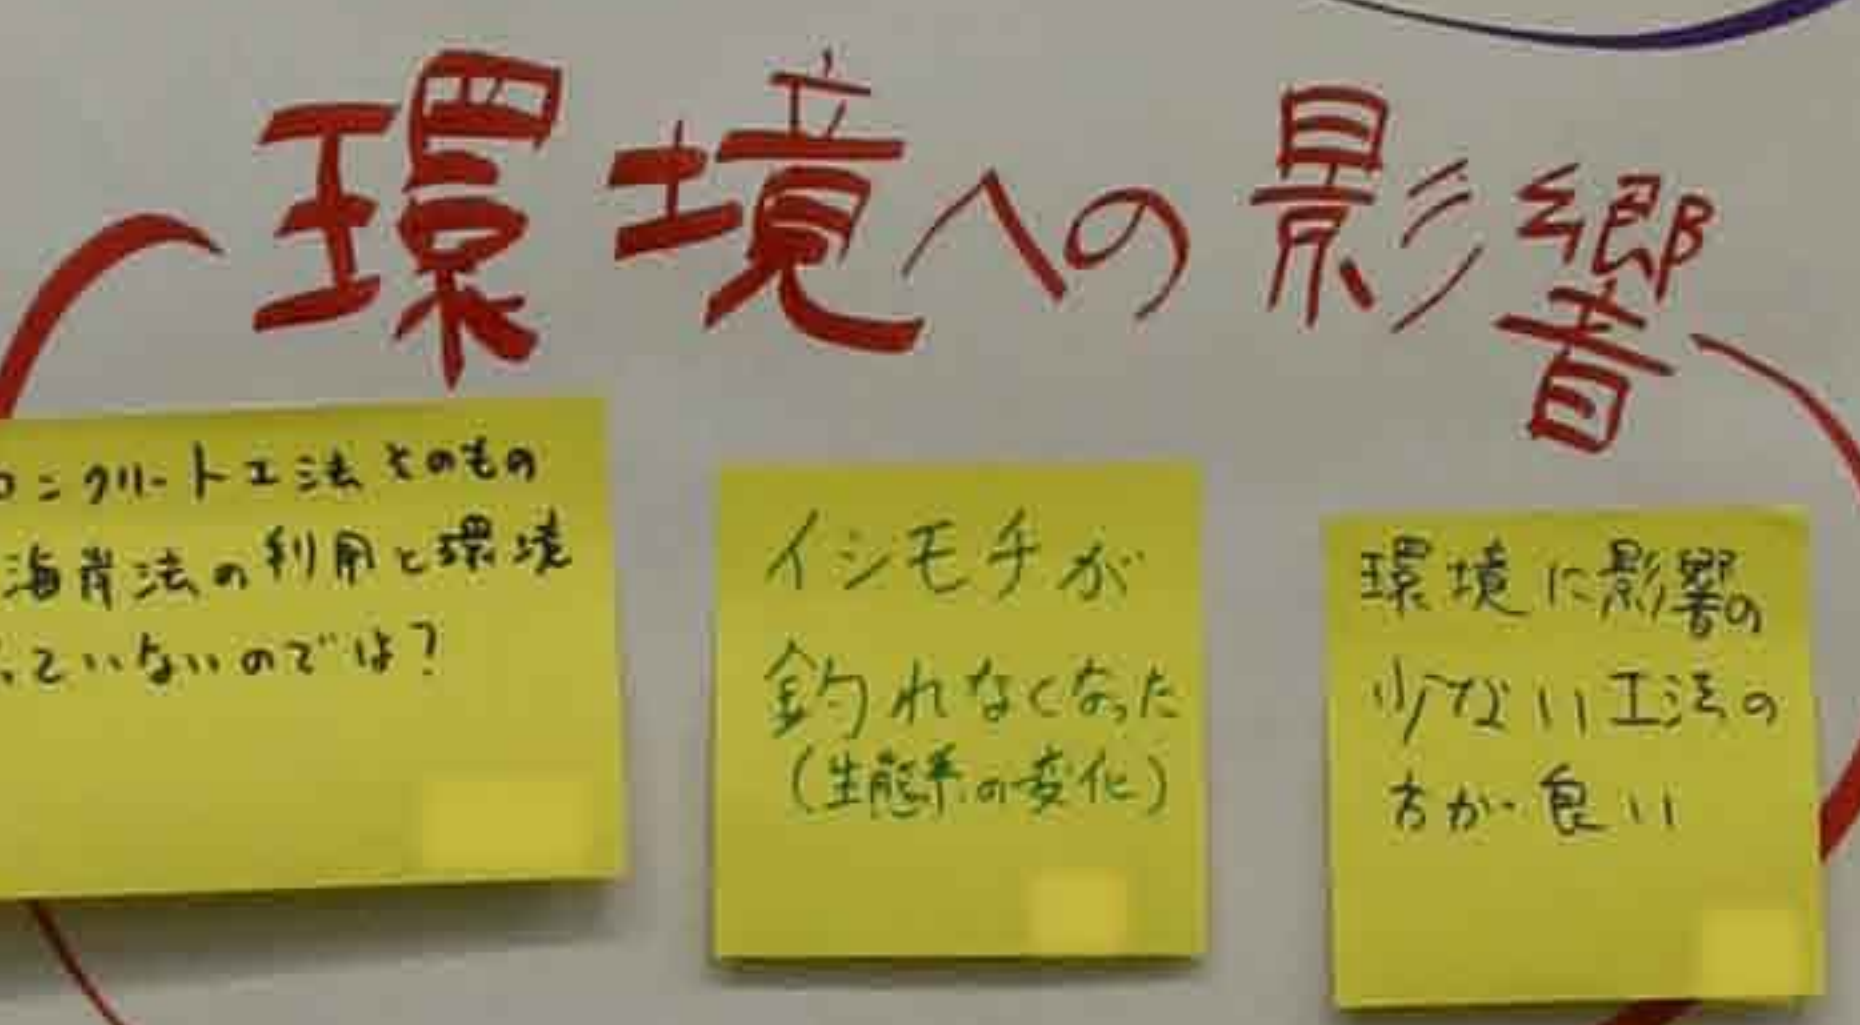 環境への影響
コンクリート工法そのもの
海岸法の利用と環境
っていないのでは?
イシモチが
釣れなくなった
(生態系の変化)
環境に影響の
少ない工法の
方が良い